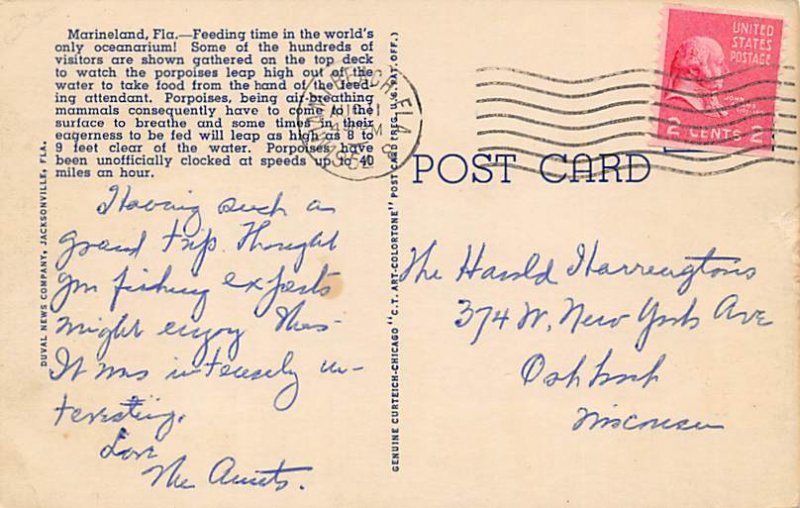 Marineland, Fla.—Feeding time in the world's
only oceanarium! Some of the hundreds of
visitors are shown gathered on the top deck
to watch the porpoises leap high out of the
water to take food from the hand of the feed-
ing attendant. Porpoises, being air-breathing
mammals consequently have to come to the
surface to breathe and some times in their
eagerness to be fed will leap as high as 8 to
9 feet clear of the water. Porpoises have
been unofficially clocked at speeds up to 40
miles an hour.
Having such a
grand trip. Thought
you fishing experts
might enjoy this-
It was intensely in-
teresting.
Love
The Aunts.
DUVAL NEWS COMPANY, JACKSONVILLE, FLA.
GENUINE CURTEICH-CHICAGO "C.T. ART-COLORTONE" POST CARD (REG. U.S. PAT. OFF.)
BEACH, FLA.
UNITED
STATES
POSTAGE
JOHN
2 CENTS 2
POST CARD
The Harold Harringtons
374 W. New York Ave
Oshkosh
Wisconsin